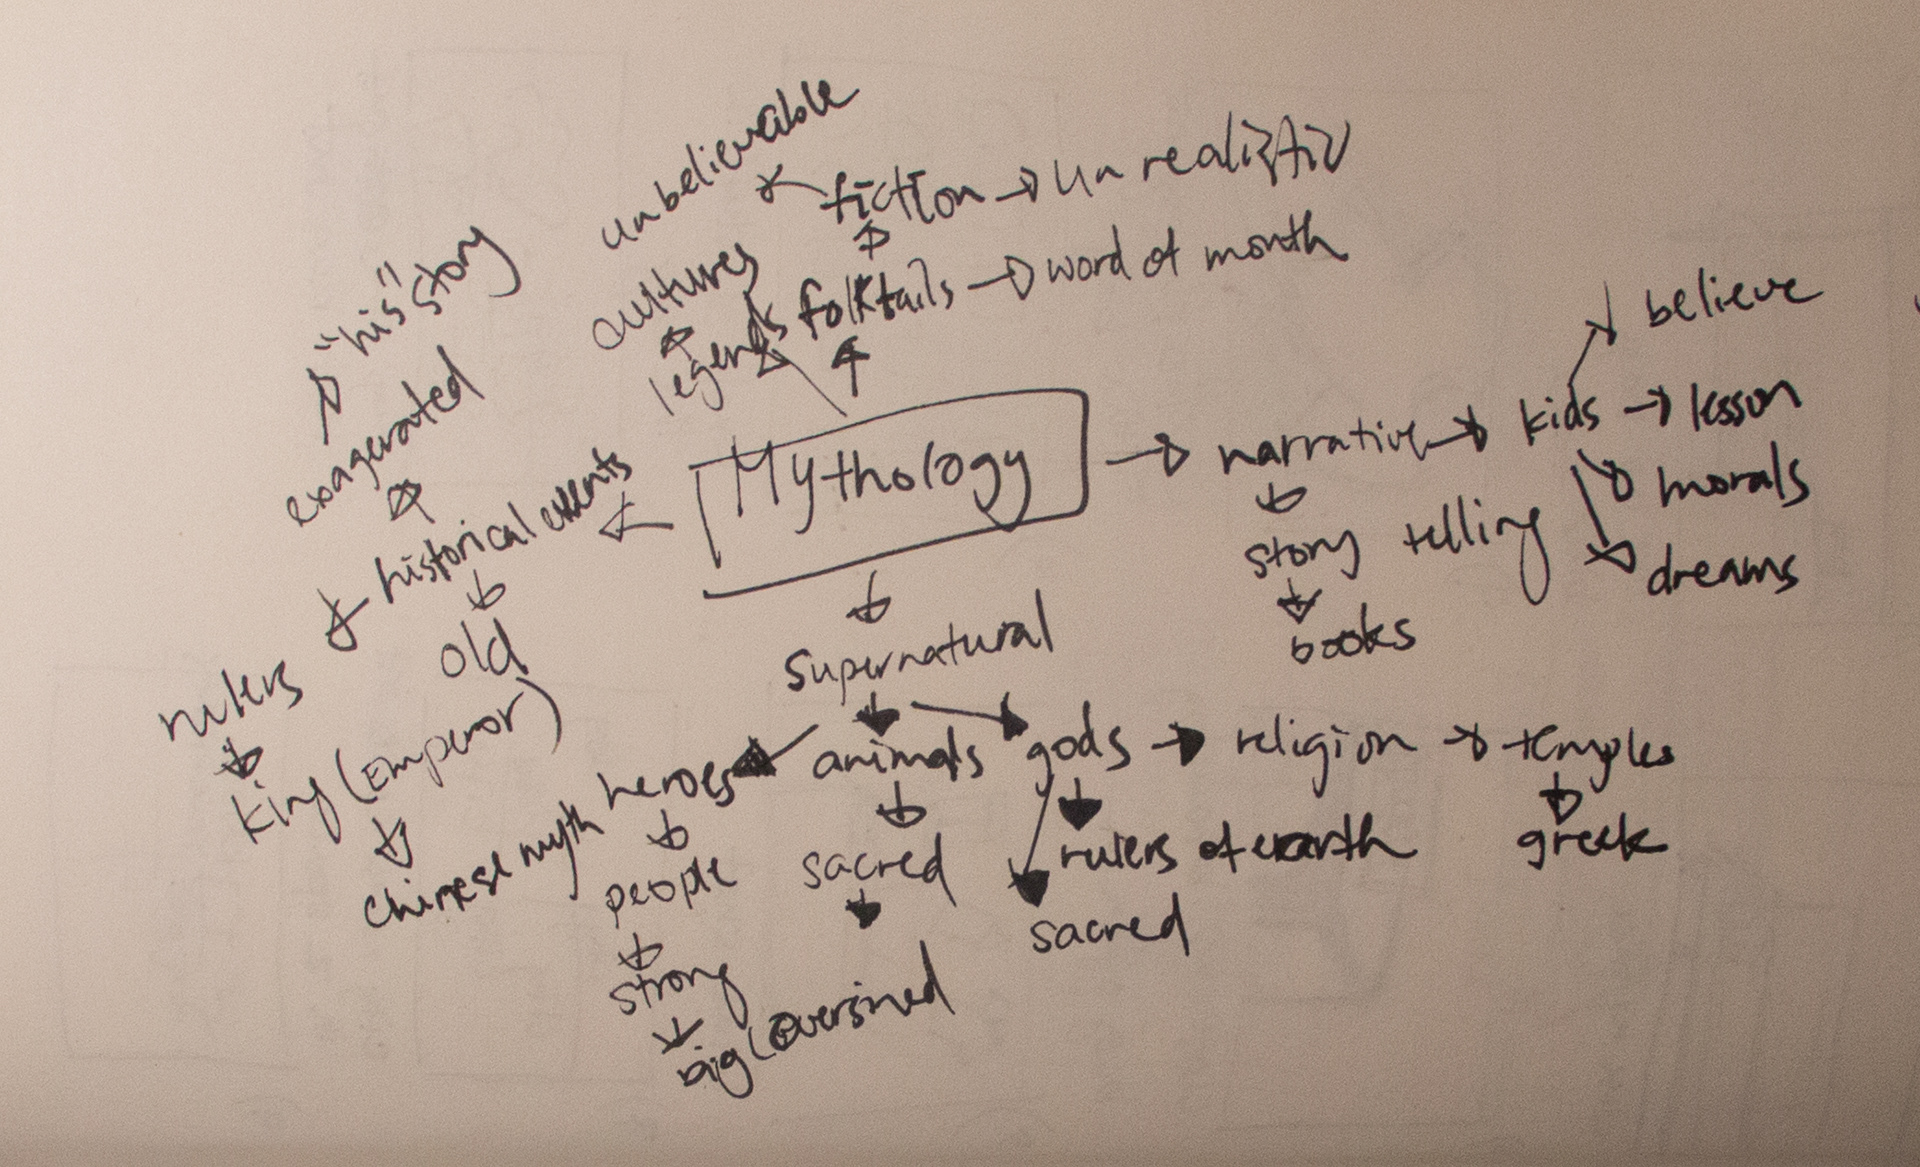 unbelievable
fiction
unrealistic
"his" story
cultures
legends
folktails
word of month
exagerated
Mythology
narrative
kids
believe
lesson
morals
dreams
historical events
story telling
books
old
rulers
king (Emperor)
chinese myth
supernatural
heroes
animals
gods
religion
temples
people
sacred
rulers of earth
greek
sacred
strong
big (oversized